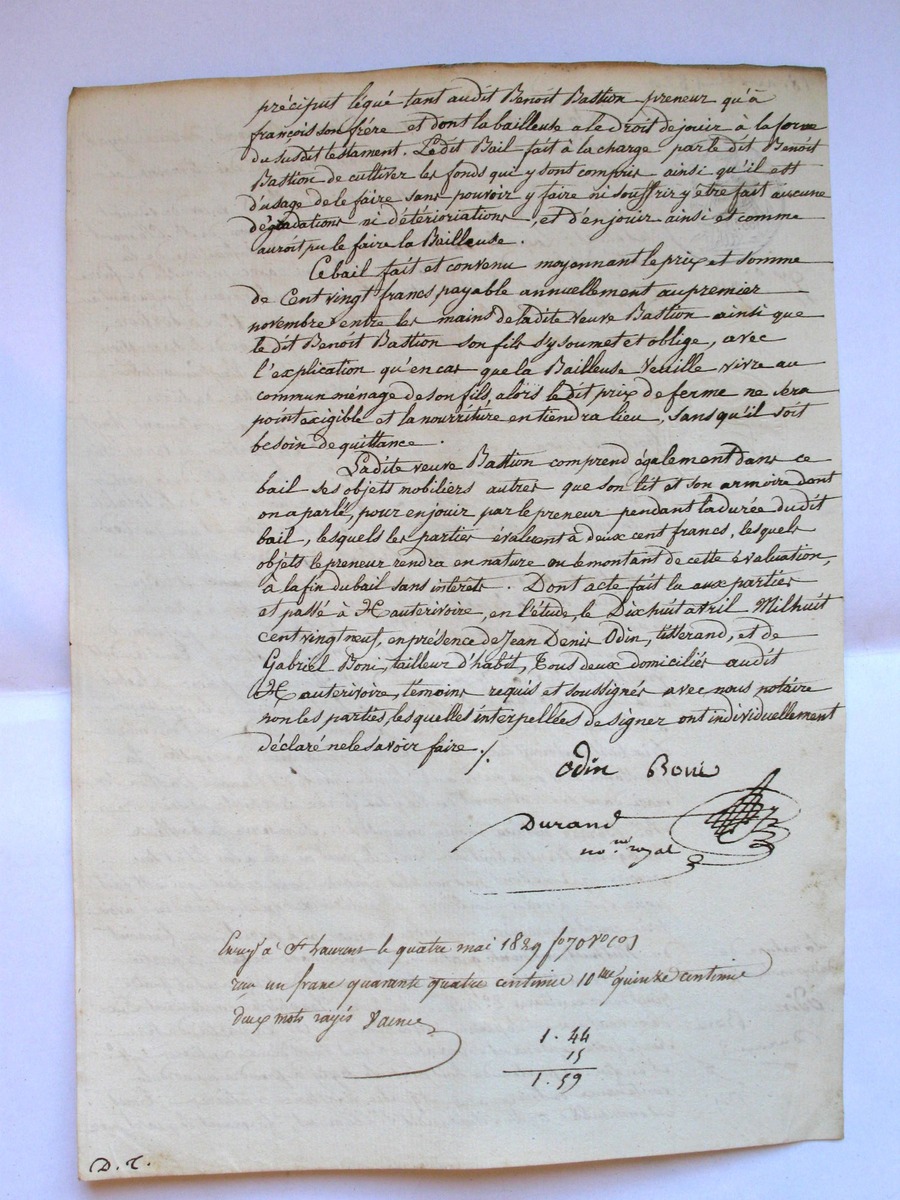 préciput légué tant audit Benoit Bastion preneur qu'à
françois son frère et dont la bailleuse a le droit de jouir à la forme
du susdit testament. Ledit Bail fait à la charge par le dit Benoit
Bastion de cultiver les fonds qui y sont compris ainsi qu'il est
d'usage de le faire sans pouvoir y faire ni souffrir y être fait aucune
dégradations ni détérioriations, et d'en jouir ainsi et comme
auroit pu le faire la Bailleuse.
Ce bail fait et convenu moyennant le prix et somme
de Cent vingt francs, payable annuellement au premier
novembre entre les mains de ladite veuve Bastion ainsi que
le dit Benoit Bastion son fils s'y soumet et oblige, avec
l'explication qu'en cas que la Bailleuse Veuille vivre au
commun ménage de son fils, alors le dit prix de ferme ne sera
point exigible et la nourriture en tiendra lieu, sans qu'il soit
besoin de quittance.
Ladite veuve Bastion comprend également dans ce
bail ses objets mobiliers autres que son lit et son armoire dont
on a parlé, pour en jouir par le preneur pendant la durée du dit
bail, lesquels les parties évaluent à deux cent francs, lesquels
objets le preneur rendra en nature ou le montant de cette évaluation,
à la fin du bail sans intérêts. Dont acte fait lu aux parties
et passé à Hauterivoire, en l'étude, le Dix huit avril Mil huit
cent vingt neuf, en présence de Jean Denis Odin, tisserand, et de
Gabriel Boni, tailleur d'habit, Tous deux domiciliés audit
Hauterivoire, témoins requis et soussignés avec nous notaire
non les parties, lesquelles interpellées de signer ont individuellement
déclaré ne le savoir faire./.
Odin Boni
Durand
no.re royal
à St Laurent le quatre mai 1829 fo 70 Vo
un franc quarante quatre centimes 10me quinze centimes
deux mots rayés
1.44
15
1.59
D.T.